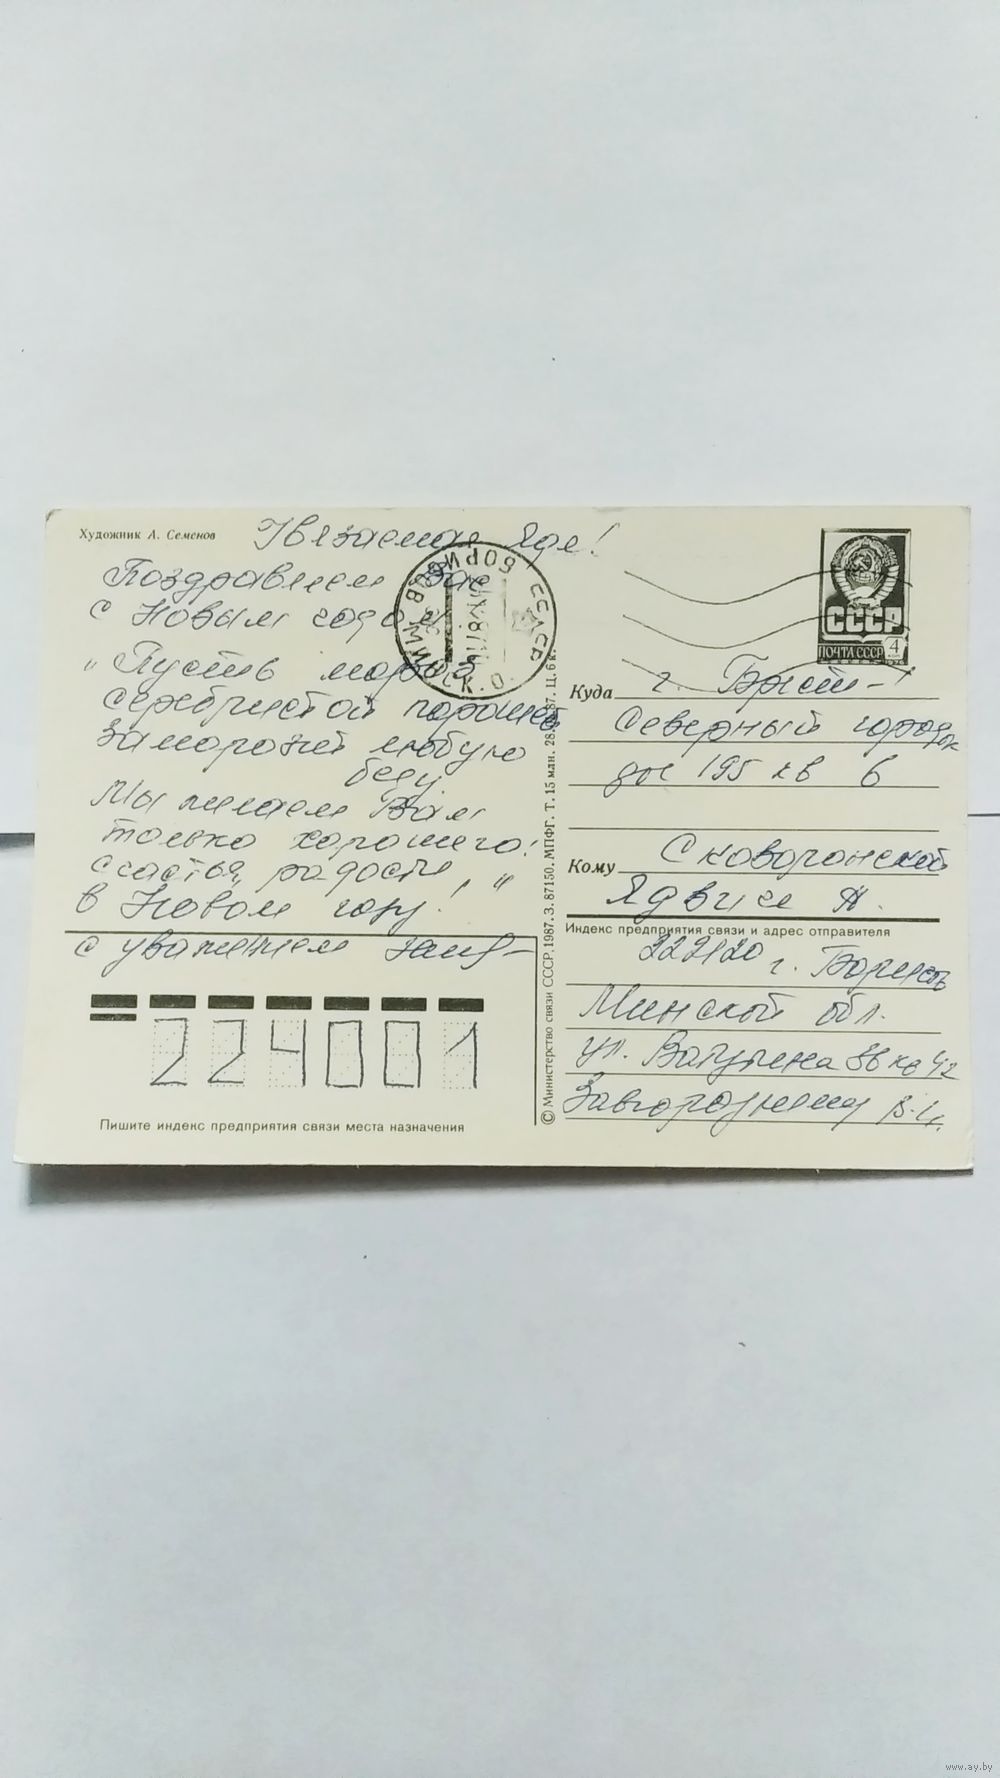 Художник А. Семенов
Уважаемая Ядя!
Поздравляем Вас
с Новым годом
„Пусть мороз
серебристой порошей
заморозит любую
беду.
Мы желаем Вам
только хорошего!
счастья, радости, "
в Новом году!
с уважением
224001
Пишите индекс предприятия связи места назначения
© Министерство связи СССР, 1987. З. 87150. МПФГ. Т. 15 млн. 28. 87. Ц. 6 к.
БОРИСОВ МИНСК. О.
БССР
СССР
ПОЧТА СССР 4
1976
Куда г. Брест-1
Северный городок
дом 195 кв 6
Кому Сковоронской
Ядвиге А.
Индекс предприятия связи и адрес отправителя
222120 г. Борисов
Минской обл.
ул. Ватутина 36 кв 42
В. И.
www.ay.by